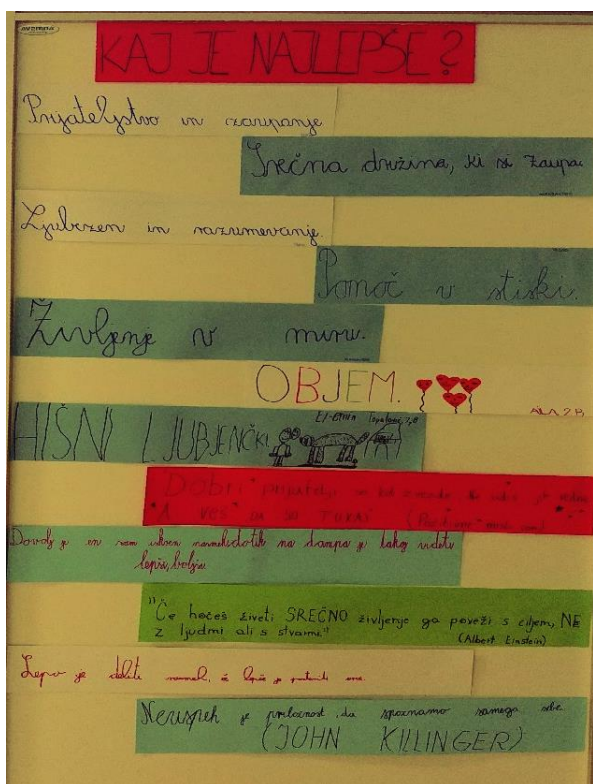 KAJ JE NAJLEPŠE?
Prijateljstvo in zaupanje
Srečna družina, ki si zaupa.
Ljubezen in razumevanje.
Pomoč v stiski.
Življenje v miru.
OBJEM.
HIŠNI LJUBJENČKI
Dobri prijatelji so kot zvezde. Ne vidiš jih vedno,
A VEŠ da so TUKAJ
Dovolj je en sam iskren nasmeh, dotik na da je lahko
lepši, boljši.
"Če hočeš živeti SREČNO življenje ga poveži s ciljem, NE
z ljudmi ali s stvarmi."
(Albert Einstein)
Lepo je deliti nasmeh, še lepše je
Neuspeh je priložnost, da spoznamo samega sebe
(JOHN KILLINGER)